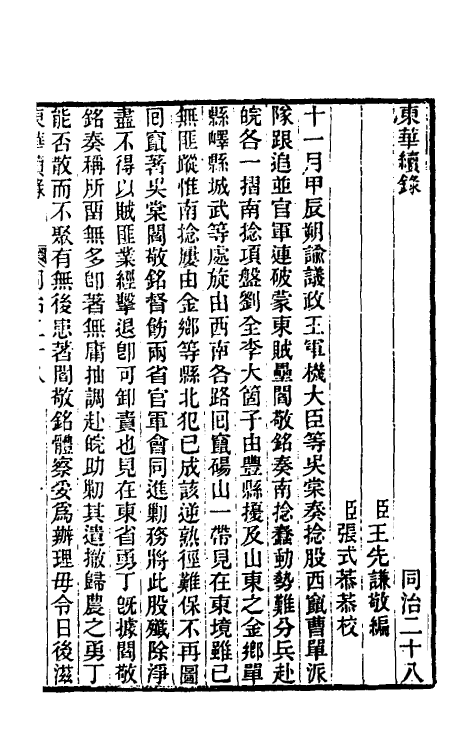 東華續錄
同治二十八
臣王先謙敬編
臣張式恭恭校
十一月甲辰朔諭議政王軍機大臣等吳棠奏捻股西竄曹單派
隊跟追並官軍連破蒙東賊壘閻敬銘奏南捻蠢動勢難分兵赴
皖各一摺南捻項盤劉全李大箇子由豐縣擾及山東之金鄉單
縣嶧縣城武等處旋由西南各路回竄碭山一帶見在東境雖已
無匪蹤惟南捻屢由金鄉等縣北犯已成該逆熟徑難保不再圖
回竄著吳棠閻敬銘督飭兩省官軍會同進勦務將此股殲除淨
盡不得以賊匪業經擊退卽可卸責也見在東省勇丁旣據閻敬
銘奏稱所留無多卽著無庸抽調赴皖助勦其遣撤歸農之勇丁
能否散而不聚有無後患著閻敬銘體察妥爲辦理毋令日後滋
東華續錄 同治二十八